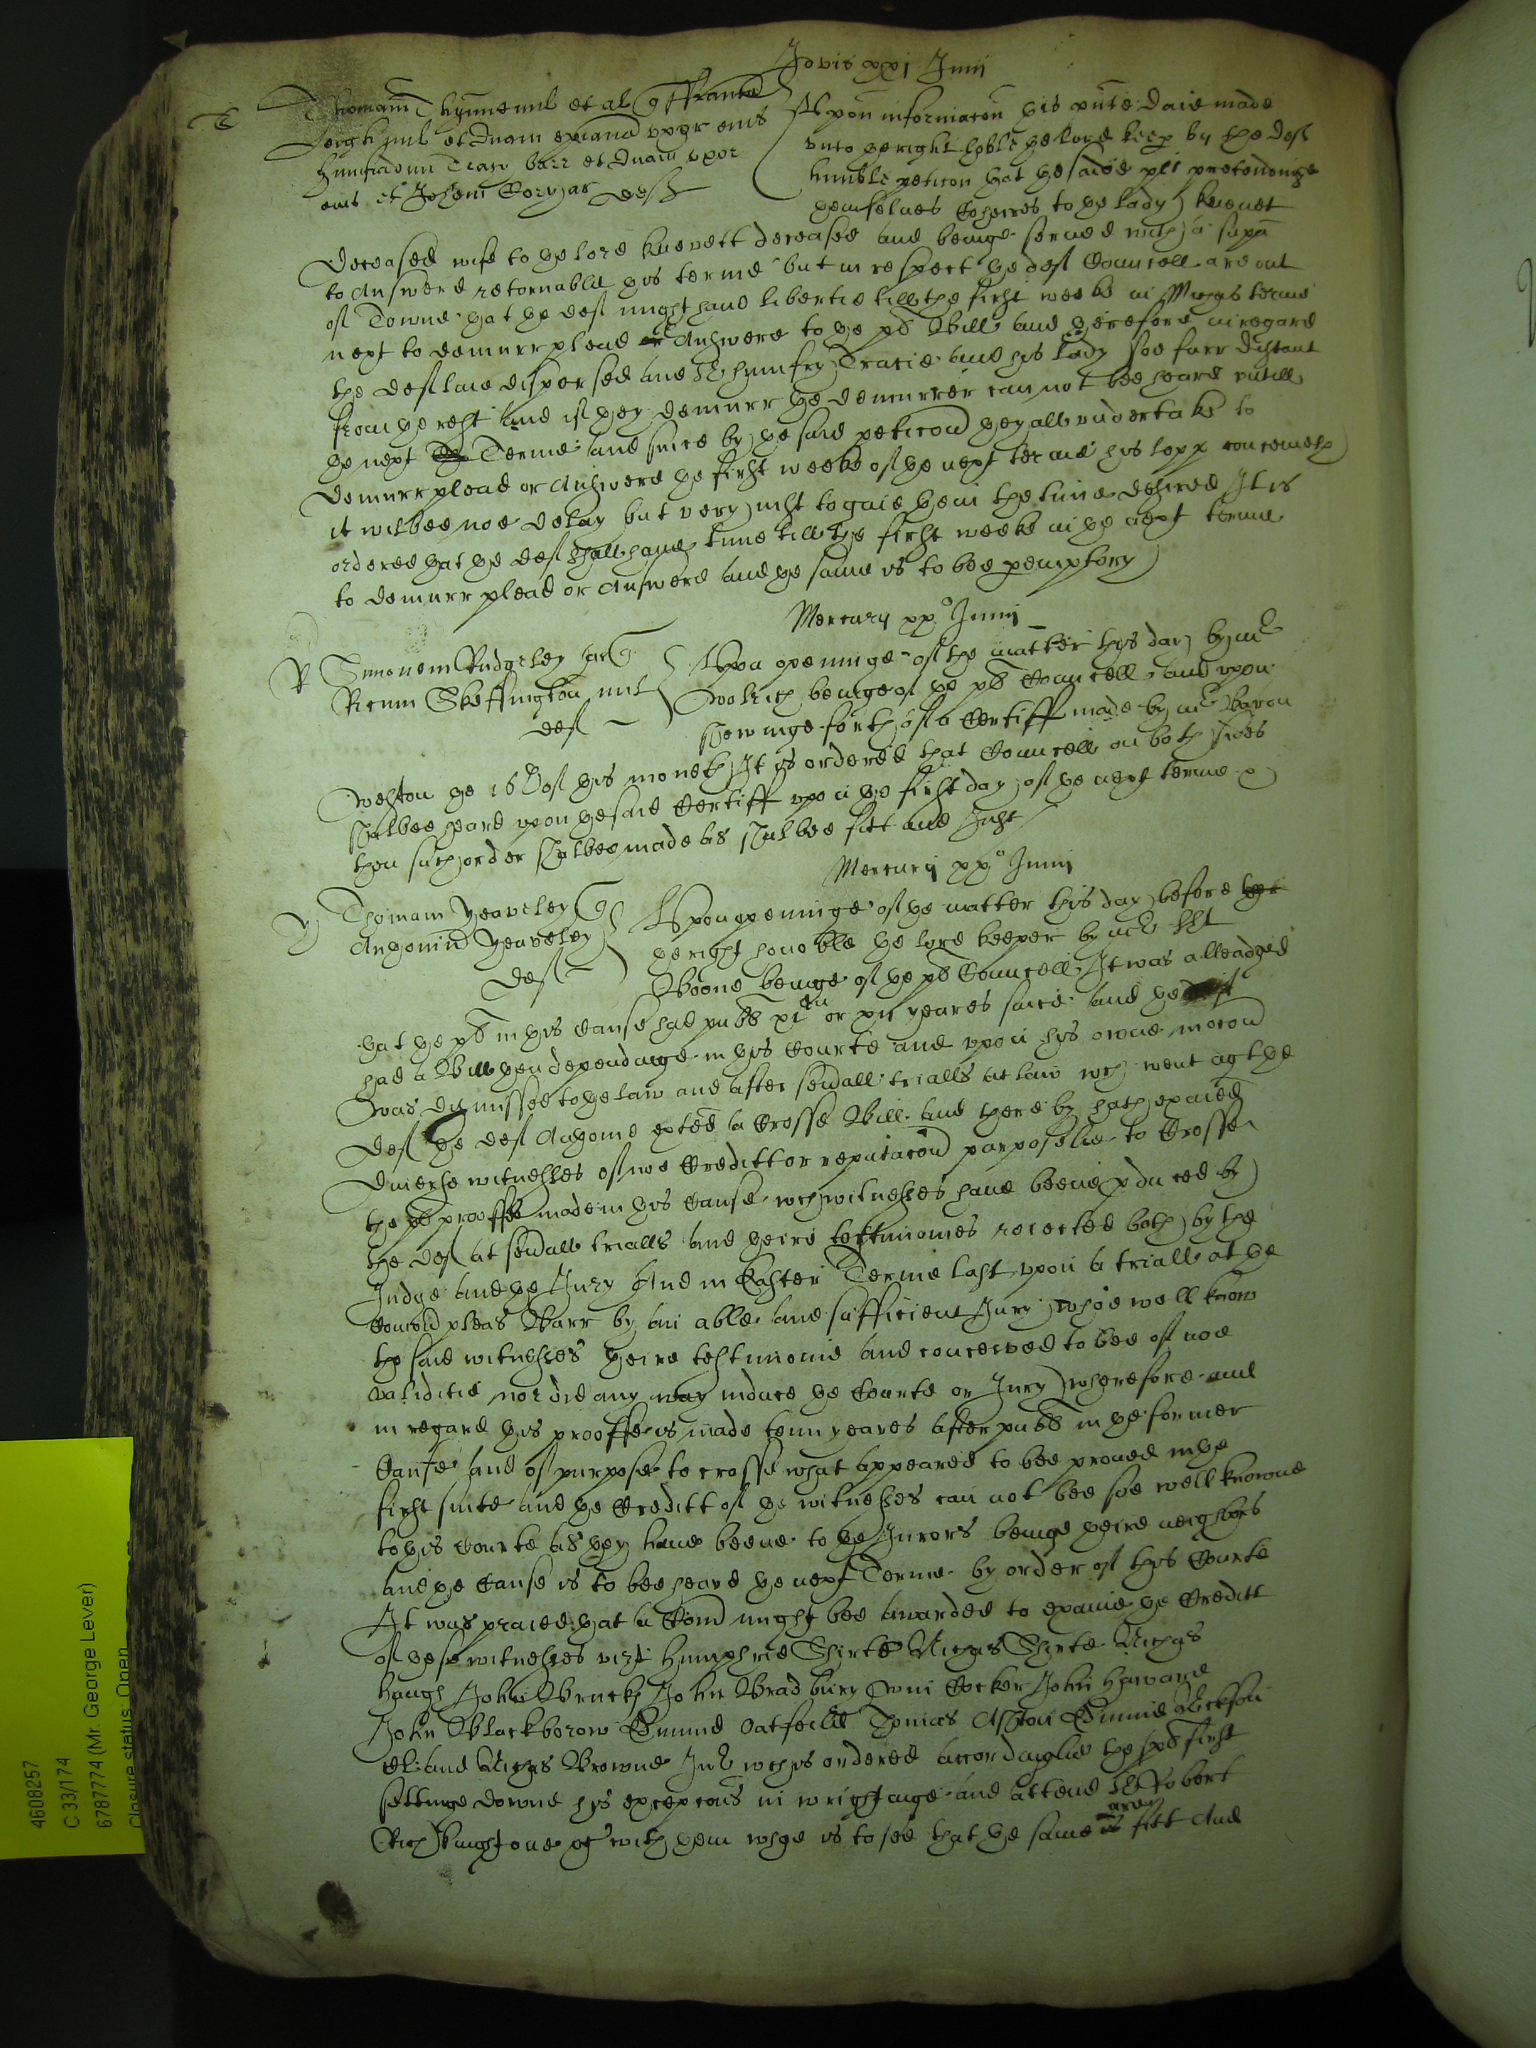 Jovis xxj Junij
T
Thomam Thynne mil et al q
Leigh mil et Dnam
Humfridum Tracy barr et Dnam uxor
eius et Johem def
Upon informacon this pnte daie made
unto the right hoble the lord keep by the def
humble peticon that the said plt pretendinge
themselves Coheires to the lady Knevet
deceased wife to the lord Knevett deceased and beinge served with a supa
to Answere retornable this terme but in respect the def Councell are out
of Towne that the def might have libertie till the first weeke in Michas terme
next to demurr plead or Answere to the plt Bill and therefore in regard
the def laie dispersed and Sr Humfry Tracie and his lady soe farr distant
from the rest and if they demurr the demurrer can not bee heard untill
the next Terme and since by the said peticon they all undertake to
demurr plead or Answere the first weeke of the next terme his lopp conceiveth
it wilbee noe delay but very just to give them the time desired It is
ordered that the def shall have time till the first weeke in the next terme
to demurr plead or Answere and the same is to bee pemptory
Mercury xxo Junij
R
Simonem Rudgeley ar q
Ricum Skeffington mil
def
Upon openinge of the matter this day by mr
Wolrich beinge of the plt Councell and upon
shewinge forth of a Certiff made by mr Baron
Weston the 16th of this moneth It is ordered that Councell on both sides
shalbee heard upon the said Certiff upon the first day of the next terme &
then such order shalbee made as shalbee fitt and Just
Mercurij xxo Junij
Y
Thomam Yeaveley q
Anthonium Yeaveley
def
Upon openinge of the matter this day before the
the right honoble the lord keeper by mr Sit
Boone beinge of the plt Councell It was alleadged
that the plt in this cause had publ xien or xii yeares since and the def
had a Bill then dependinge in this Courte and upon his owne mocon
was dismissed to the law and after sevall trialls at law wch went agt the
def the def Anthonie exted a Crosse Bill and thereby hath exaied
diverse witnesses of noe Creditt or reputacon purposelie to Crosse
the plt prooffe made in this cause wch witnesses have beene pduced by
the def at sevall trialls and theire testimonies reiected both by the
Judge and the Jury And in Easter Terme last upon a triall at the
Comon pleas Barr by an able and sufficient Jury whoe well know
the said witnesses theire testimonie and conceived to bee of noe
validitie nor did any way induce the Courte or Jury wherefore and
in regard this prooffe is made tenn yeares after publ in the former
Cause and of purpose to crosse what appeared to bee proved in the
first suite and the Creditt of the witnesses can not bee soe well knowne
to this Courte as they have beene to the Jurors beinge theire neighbors
and the Cause is to bee heard the next Terme by order of this Courte
It was praied that a Comn might bee awarded to exaie the Creditt
of these witnesses vizt Humphrie Shirte Nichas Shirte Nichas
Haugh John Bruch John Bradbury Wm Cocker John Haward
John Blackborow Edmund Oatfeild Thomas Ashton Edmund Jackson
et and Nichas Browne Junr wch is ordered accordinglie the plt first
settinge downe his excepcons in writinge and attend Sr Robert
Rich kinght one &c with them whoe is to see that the same are is fitt And
4608257
C 33/174
6787774 (Mr. George Lever)
Closure status: Open